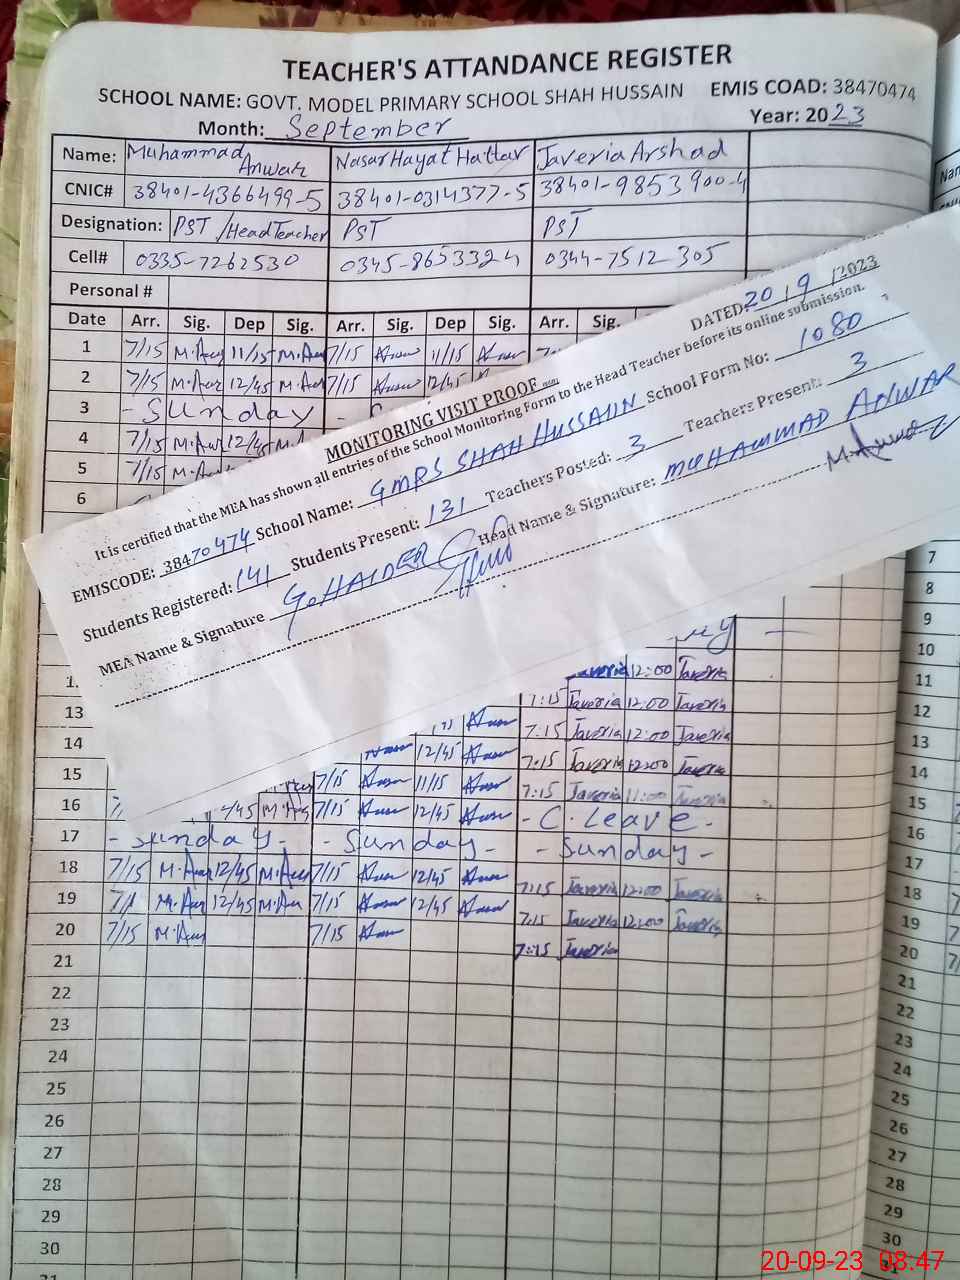 TEACHER'S ATTANDANCE REGISTER
SCHOOL NAME: GOVT. MODEL PRIMARY SCHOOL SHAH HUSSAIN EMIS COAD: 38470474
Month: September Year: 2023
Name: Muhammad Anwar Nasar Hayat Hattar Javeria Arshad
CNIC# 38401-4366499-5 38401-0314377-5 38401-9853900-4
Designation: PST /Head Teacher PST PST
Cell# 0335-7262530 0345-8653324 0344-7512305
Personal #
Date Arr. Sig. Dep Sig. Arr. Sig. Dep Sig. Arr. Sig.
1 7/15 11/15 7/15 11/15
2 7/15 12/45 7/15 12/45
3 - Sunday
4 7/15 12/45
5 7/15
6
MONITORING VISIT PROOF
DATED 20/9/2023
It is certified that the MEA has shown all entries of the School Monitoring Form to the Head Teacher before its online submission.
EMISCODE: 38470474 School Name: GMPS SHAH HUSSAIN School Form No: 1080
Students Registered: 141 Students Present: 131 Teachers Posted: 3 Teachers Present: 3
MEA Name & Signature G. HAIDER Head Name & Signature: MUHAMMAD ANWAR
Javeria 12:00 Javeria
13 7:15 Javeria 12:00 Javeria
14 12/45 7:15 Javeria 12:00 Javeria
15 7/15 11/15 7:15 Javeria 12:00 Javeria
16 12/45 7/15 12/45 7:15 Javeria 11:00 Javeria
- C. Leave -
17 - Sunday - - Sunday - - Sunday -
18 7/15 12/45 7/15 12/45 7:15 Javeria 12:00 Javeria
19 12/45 7/15 12/45 7:15 Javeria 12:00 Javeria
20 7/15 7/15 7:15 Javeria
21
22
23
24
25
26
27
28
29
30
7
8
9
10
11
12
13
14
15
16
17
18
19
20
21
22
23
24
25
26
27
28
29
30
20-09-23 08:47